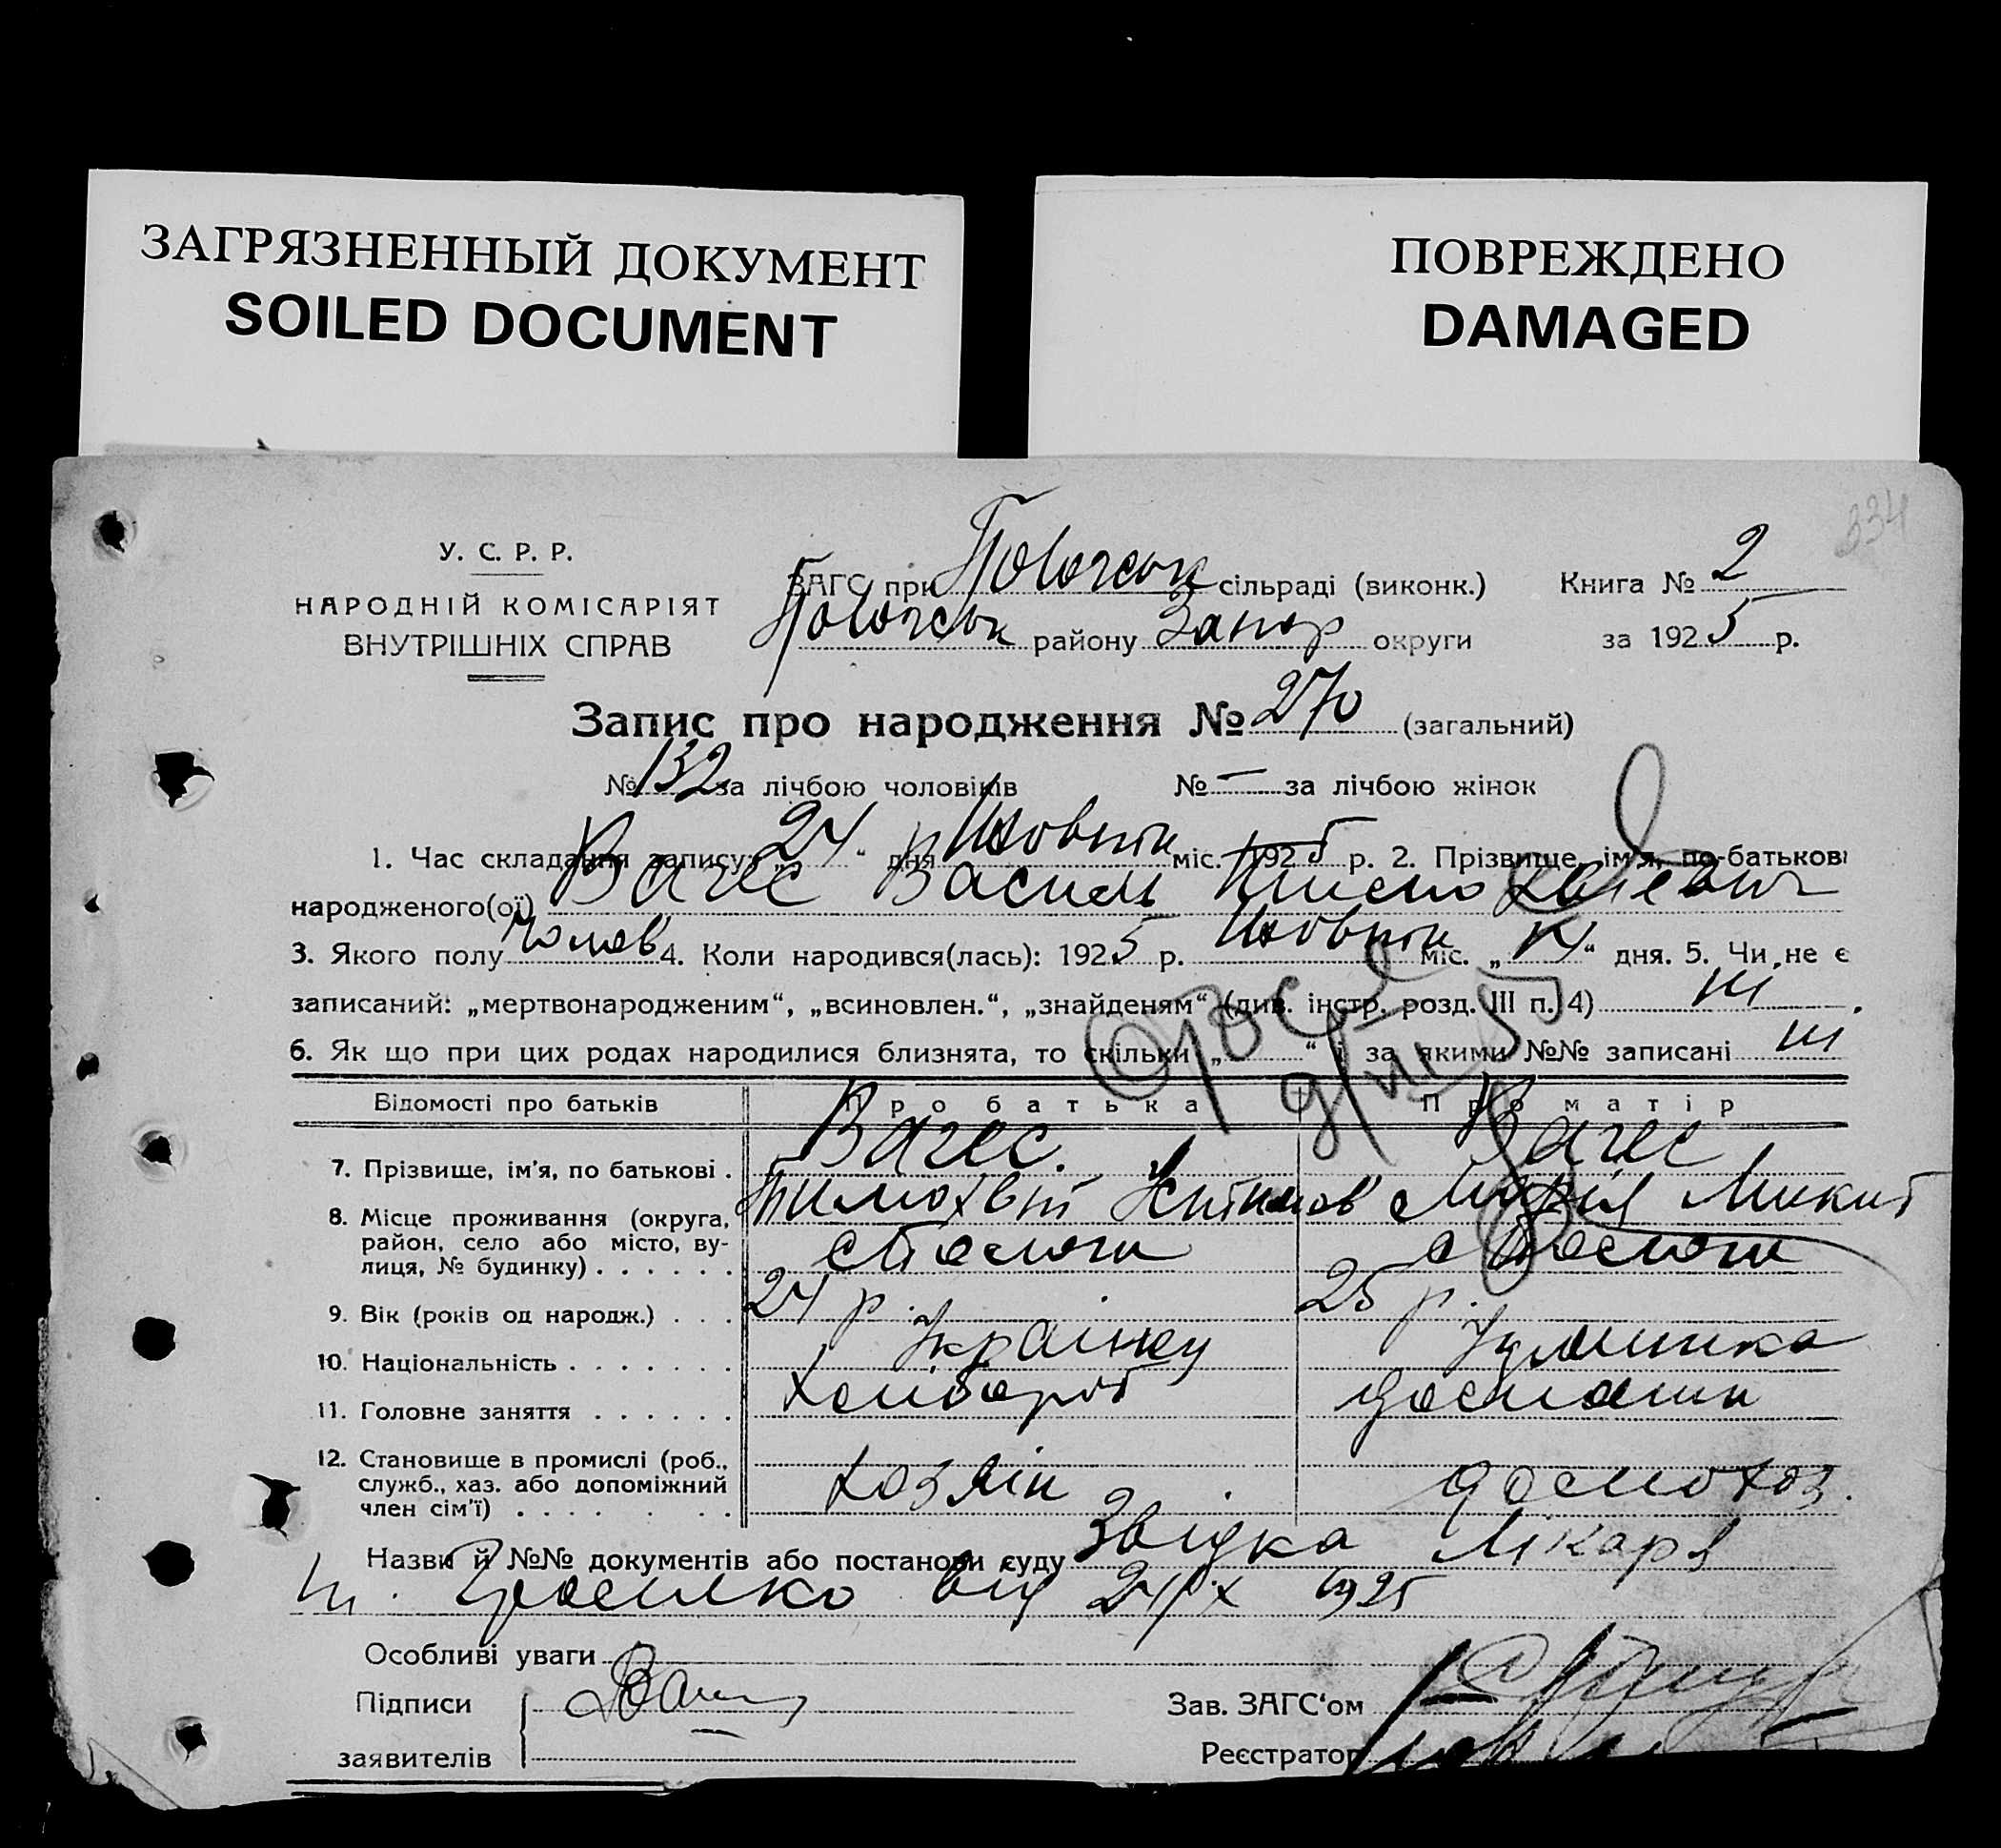 ЗАГРЯЗНЕННЫЙ ДОКУМЕНТ
SOILED DOCUMENT
ПОВРЕЖДЕНО
DAMAGED
334
У. С. Р. Р.
НАРОДНІЙ КОМІСАРІЯТ
ВНУТРІШНІХ СПРАВ
ЗАГС при Пологськ сільраді (виконк.)
Пологськ району Запор округи
Книга № 2
за 1925 р.
Запис про народження № 270 (загальний)
№ 132 за лічбою чоловіків № — за лічбою жінок
1. Час складання запису: „24“ дня Жовтня міс. 1925 р. 2. Прізвище, ім'я, по-батькові
народженого(ої) Вагес Василь
3. Якого полу Чолов 4. Коли народився(лась): 1925 р. Жовтня міс. „ “ дня. 5. Чи не є
записаний: „мертвонародженим“, „всиновлен.“, „знайденям“ (див. інстр. розд. III п. 4) ні.
6. Як що при цих родах народилися близнята, то скільки „ “ і за якими №№ записані ні
Відомості про батьків Про батька Про матір
7. Прізвище, ім'я, по батькові . Вагес. Вагес
Тимохвій Марія Микит
8. Місце проживання (округа, район, село або місто, вулиця, № будинку) . . . . . . с Пологи с Пологи
9. Вік (років од народж.) . . . 24 р. 25 р.
10. Національність . . . . . . . Українец
11. Головне заняття . . . . . . Хлібороб
12. Становище в промислі (роб., служб., хаз. або допоміжний член сім'ї) . . . . . . . . Хозяїн домохоз.
Назви й №№ документів або постанови суду Звідка Лікаря
від 24/X 1925
Особливі уваги
Підписи
заявителів
Зав. ЗАГС'ом
Реєстратор